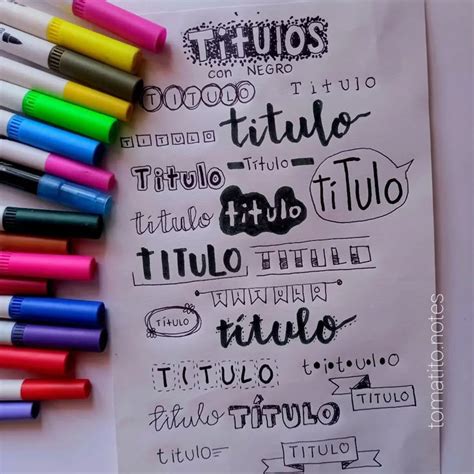 TíTULOS
con NEGRO
TITULO
TITULO
TITULO
titulo
-Título-
Titulo
titulo
tíTULO
título
TITULO
TITULO
TITULO
TÍTULO
título
TITULO
t•i•t•u•l•o
TITULO
titulo
TÍTULO
titulo
TITULO
tomatito.notes